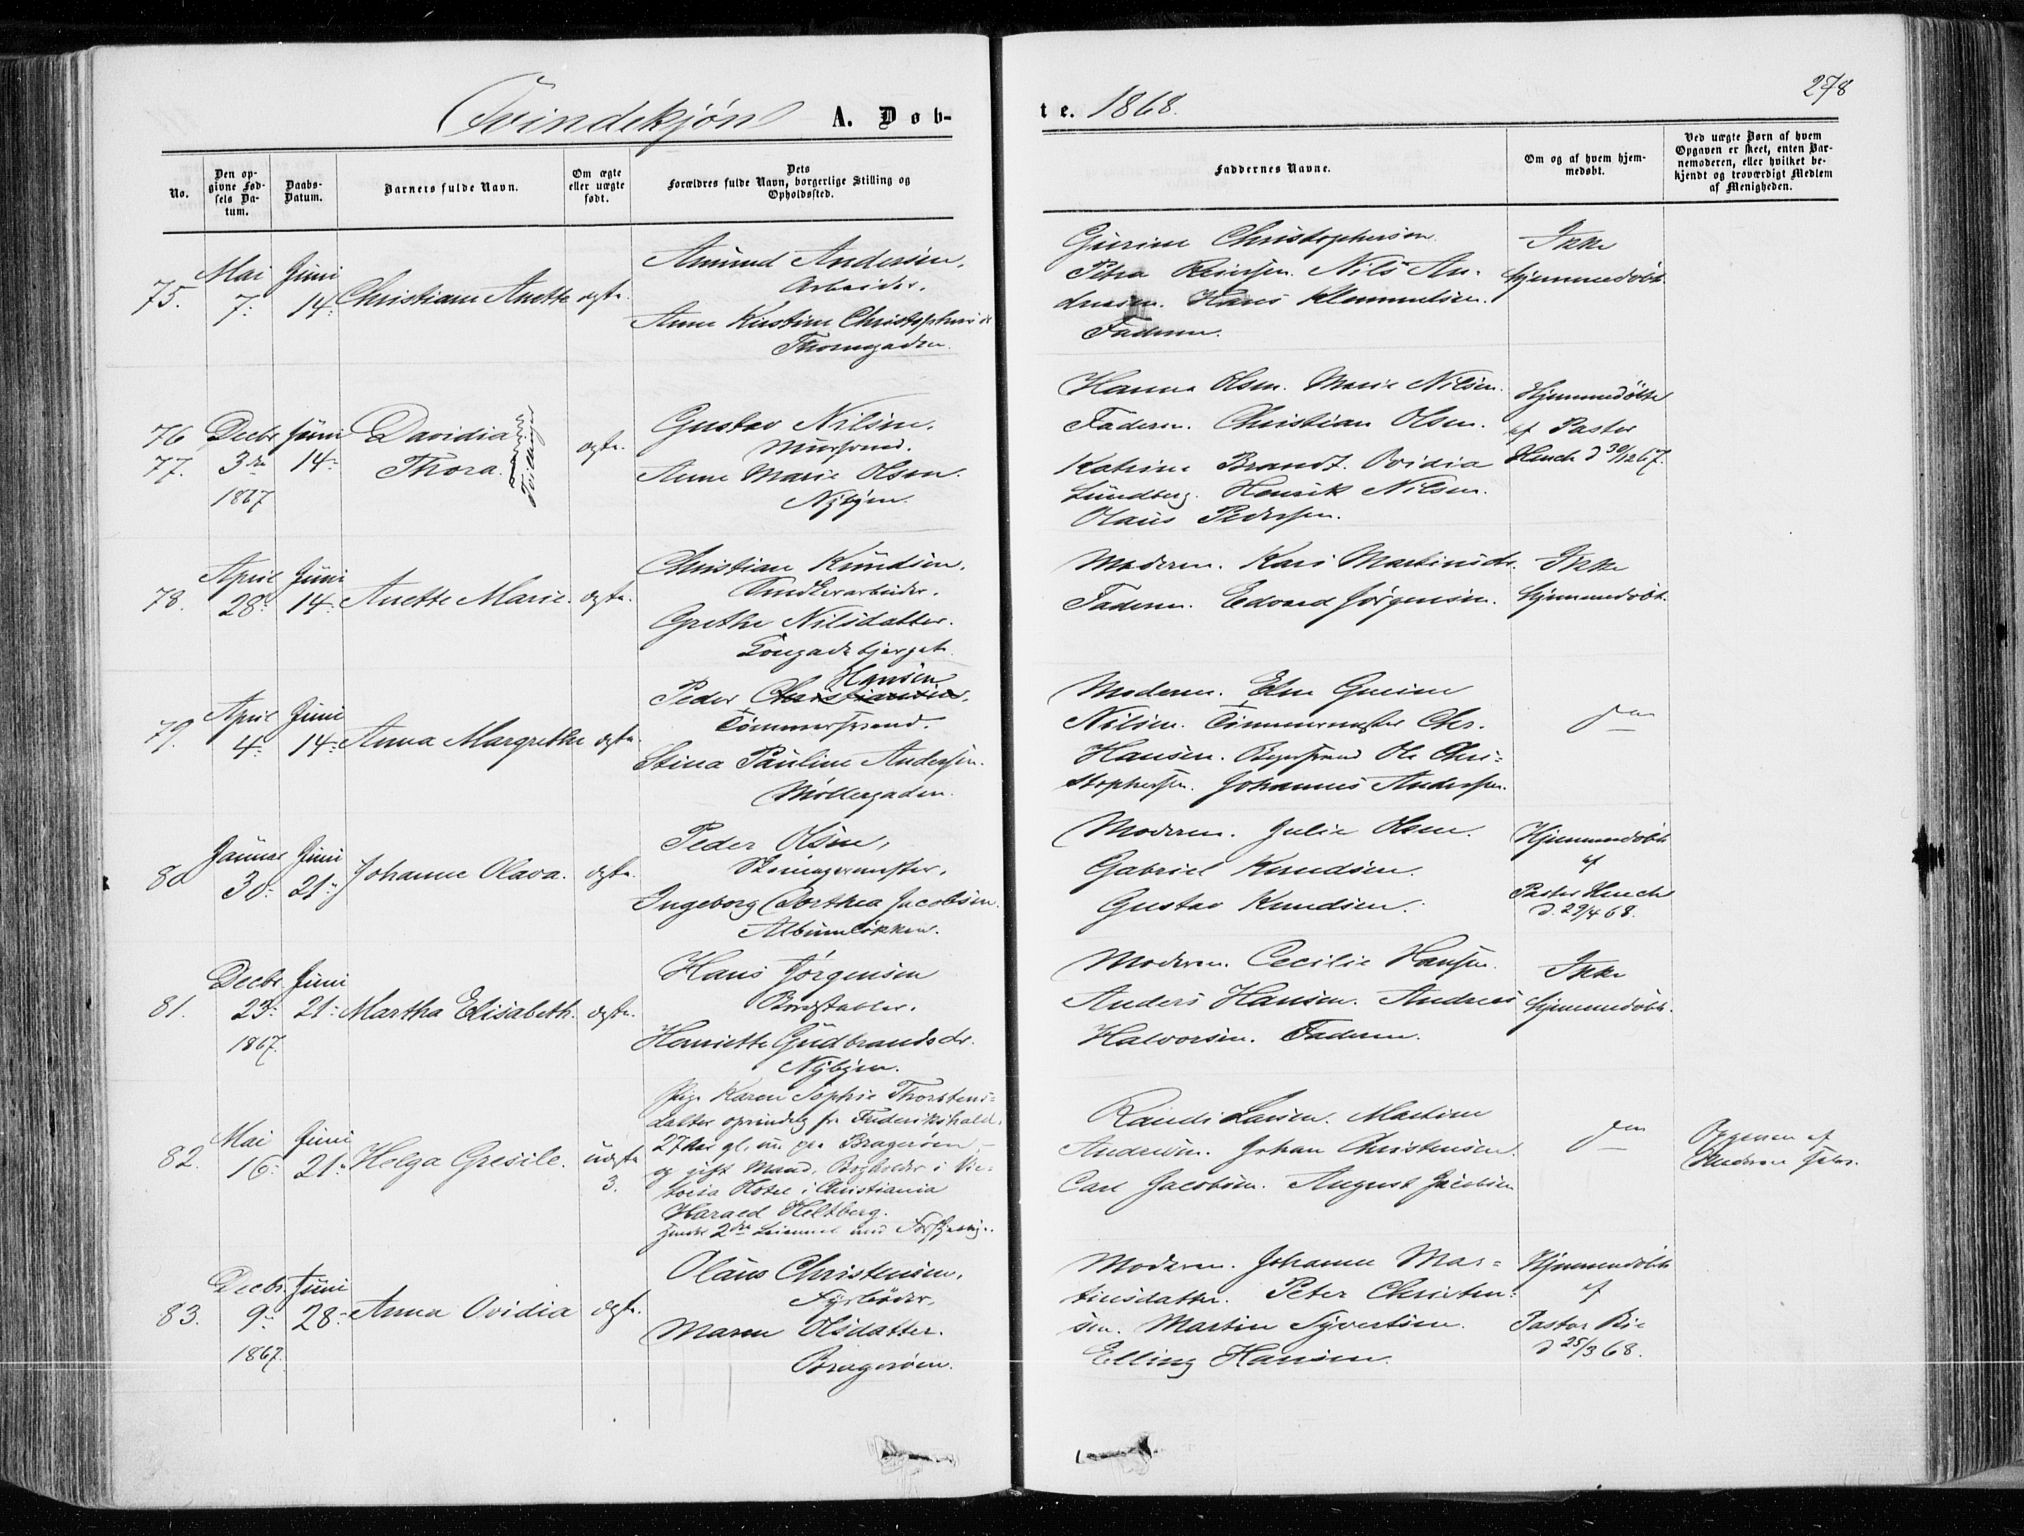 278
Qvindekjøn A. Døb-
te. 1868.
No.
Den op-
givne Fød-
sels Da-
tum.
Daabs-
Datum.
Barnets fulde Navn.
Om ægte
eller uægte
født.
Dets
Forældres fulde Navn, borgerlige Stilling og
Opholdssted.
Faddernes Navne.
Om og af hvem hjem-
medøbt.
Ved uægte Børn af hvem
Opgaven er skeet, enten Bar-
nemoderen, eller hvilket be-
kjendt og troværdigt Medlem
af Menigheden.
75.
Mai
7.
Juni
14.
Christiane Anette
ægte.
Amund Andersen,
Arbeider.
Anne Kirstine Christophersdr
Thornegaden.
Gurine Christophersen
Petra Reiersen. Nils An-
dresen. Hans Klemmetsen.
Faderen.
Ikke
hjemmedøbt.
76
77.
Decbr
3de
1867
Juni
14
Davidia
Thora.
Tvillinger
ægte.
Gustav Nilsen.
Muursvend.
Anne Marie Olsen.
Nybyen.
Hanna Olsen. Marie Nilsen.
Faderen. Christian Olsen.
Katrine Brandt. Ovidia
Lundberg. Henrik Nilsen.
Olaus Pedersen.
Hjemmedøbte
af Pastor
Hench d 30/12 67.
78.
April
28
Juni
14
Anette Marie.
ægte.
Christian Knudsen.
Tomtearbeider.
Grethe Nilsdatter.
Tougadebjerget.
Moderen. Kari Martinsdr.
Faderen. Edvard Jørgensen.
Ikke
hjemmedøbt.
79.
April
4
Juni
14
Anna Margrethe
ægte.
Hansen
Peder Christiansen.
Tømmersvend.
Stina Pauline Andersen.
Møllergaden.
Moderen. Elen Gurine
Nilsen. Tømmermester Chr.
Hansen. Bagersvend Ole Chri-
stophersen. Johannes Andersen.
do
80
Januar
30
Juni
21
Johanne Olava.
ægte.
Peder Olsen,
Ingeborg Dorthea Jacobsen.
Albumløkken.
Moderen. Julie Olsen.
Gabriel Knudsen.
Gustav Knudsen.
Hjemmedøbt
af
Pastor Hench
d. 29/4 68.
81.
Decbr.
23
1867.
Juni
21
Martha Elisabeth.
ægte.
Hans Jørgensen
Bordstabler.
Henriette Gudbrandsdr.
Nybyen.
Moderen. Cecilie Hansen.
Anders Hansen. Andreas
Halvorsen. Faderen.
Ikke
hjemmedøbt.
82.
Mai
16
Juni
21
Helga Gresile.
uægte
3.
Pige Karen Sophie Thorstens-
datter oprindelig fra Frederikshald,
27 Aar gl., nu paa Bragerøen,
og gift Mand, Bogholder i Vic-
toria Hotel i Christiania
Harald Heltberg.
hendes 2det Leiermaal
Randi Larsen. Martine
Andersen. Johan Christensen.
Carl Jacobsen. August Jacobsen
do
Opgaven af
Moderen
83.
Decbr.
9
1867.
Juni
28
Anna Ovidia
ægte.
Olaus Christensen,
Fyrbøder,
Maren Olsdatter.
Bragerøen.
Moderen. Johanne Mar-
tinsdatter. Peter Christen-
sen. Martin Syvertsen.
Elling Hansen.
Hjemmedøbt
af
Pastor
d 25/3 68.